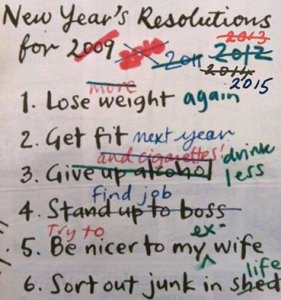 New Year's Resolutions
for 2009 2011 2012 2013
2014 2015
more
1. Lose weight again
2. Get fit next year
and cigarettes' drink
3. Give up alcohol less
find job
4. Stand up to boss
Try to ex-
5. Be nicer to my wife
life
6. Sort out junk in shed